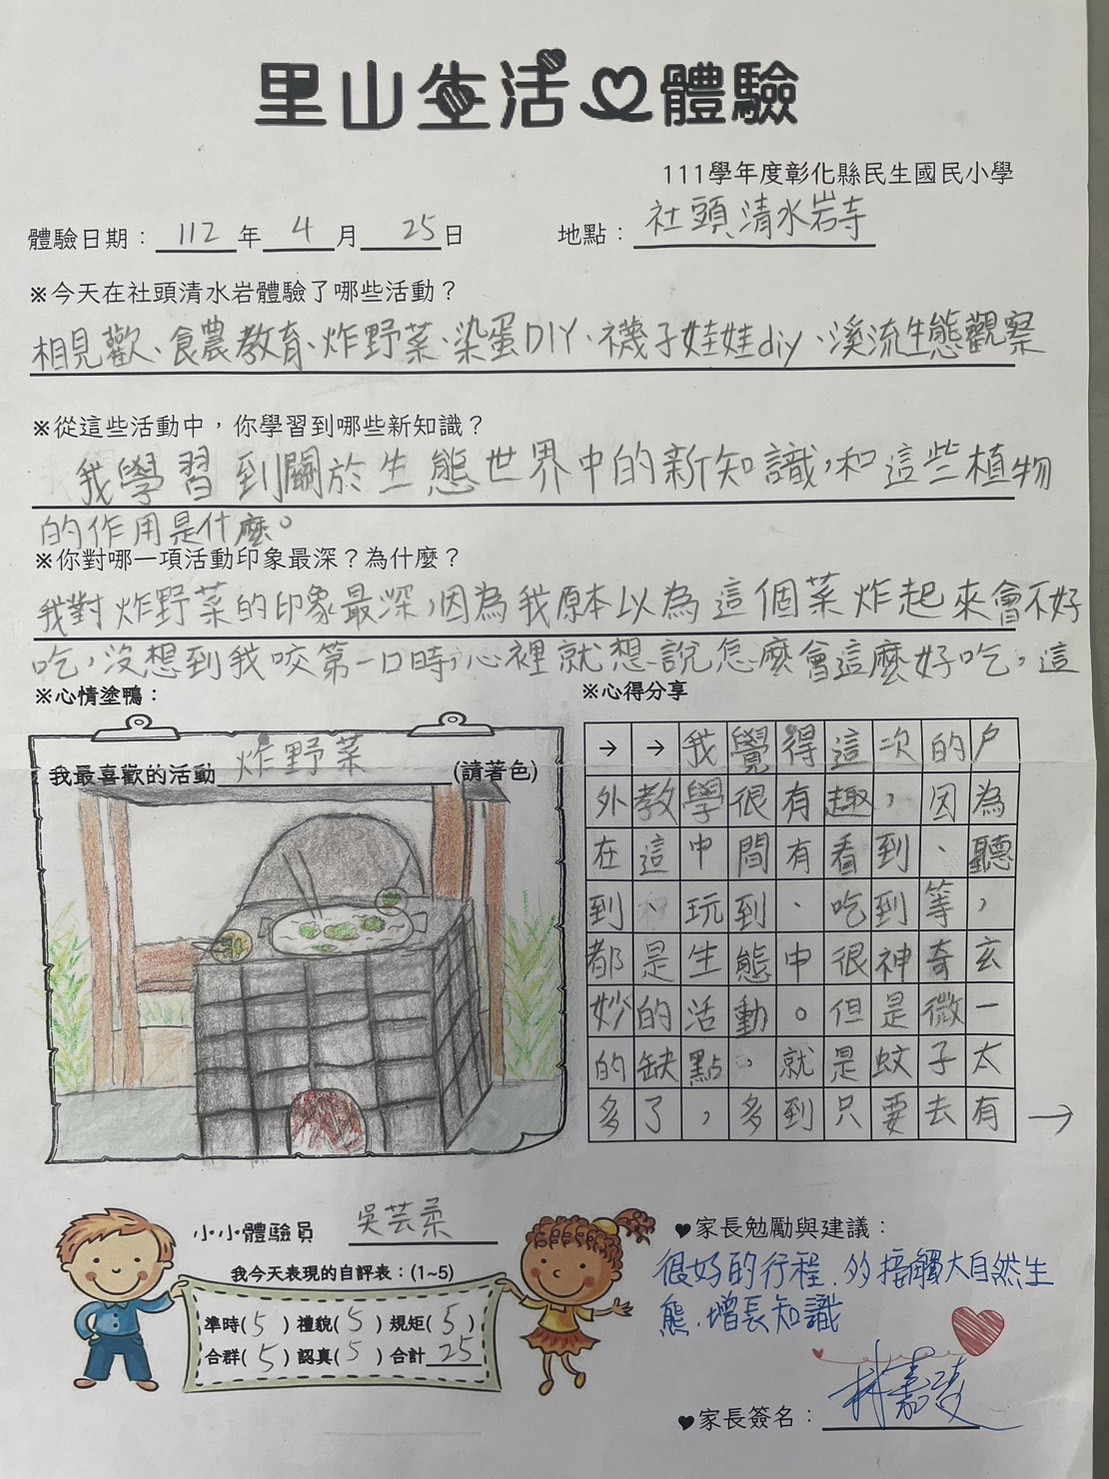 里山生活體驗
111學年度彰化縣民生國民小學
體驗日期：112年4月25日 地點：社頭清水岩寺
※今天在社頭清水岩體驗了哪些活動？
相見歡、食農教育、炸野菜、染蛋DIY、襪子娃娃diy、溪流生態觀察
※從這些活動中，你學習到哪些新知識？
我學習到關於生態世界中的新知識，和這些植物
的作用是什麼。
※你對哪一項活動印象最深？為什麼？
我對炸野菜的印象最深，因為我原本以為這個菜炸起來會不好
吃，沒想到我咬第一口時，心裡就想說怎麼會這麼好吃，這
※心情塗鴨：
我最喜歡的活動炸野菜(請著色)
※心得分享
→→我覺得這次的戶
外教學很有趣，因為
在這中間有看到、聽
到、玩到、吃到等，
都是生態中很神奇玄
妙的活動。但是微一
的缺點，就是蚊子太
多了，多到只要去有→
小小體驗員 吳芸柔
我今天表現的自評表：(1~5)
準時(5)禮貌(5)規矩(5)
合群(5)認真(5)合計25
♥家長勉勵與建議：
很好的行程.多接觸大自然生
態.增長知識
♥家長簽名：